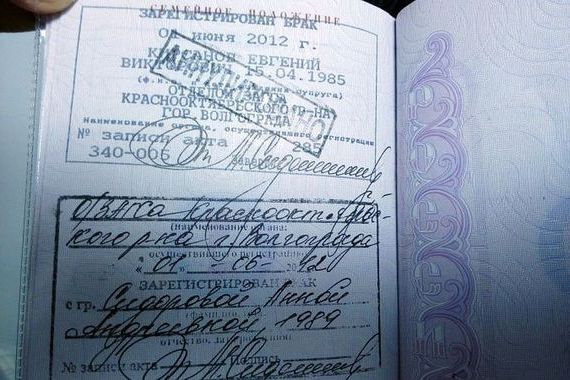 СЕМЕЙНОЕ ПОЛОЖЕНИЕ
ЗАРЕГИСТРИРОВАН БРАК
июня 2012 г.
ЕВГЕНИЙ
15.04.1985
ОТДЕЛОМ
КРАСНООКТЯБРЬСКОГО Р-НА
ГОР. ВОЛГОГРАДА
Наименование органа, осуществившего регистрацию
№ записи акта 285
340-006
ОЗАГСа Краснооктябрь-
кого р-на г. Волгограда
(наименование органа,
осуществившего регистрацию)
« 01 » - 06 - 2012
ЗАРЕГИСТРИРОВАН БРАК
с гр. Сидоровой Анной
Андреевной, 1989
отчество, дата рождения)
№ записи акта Подпись